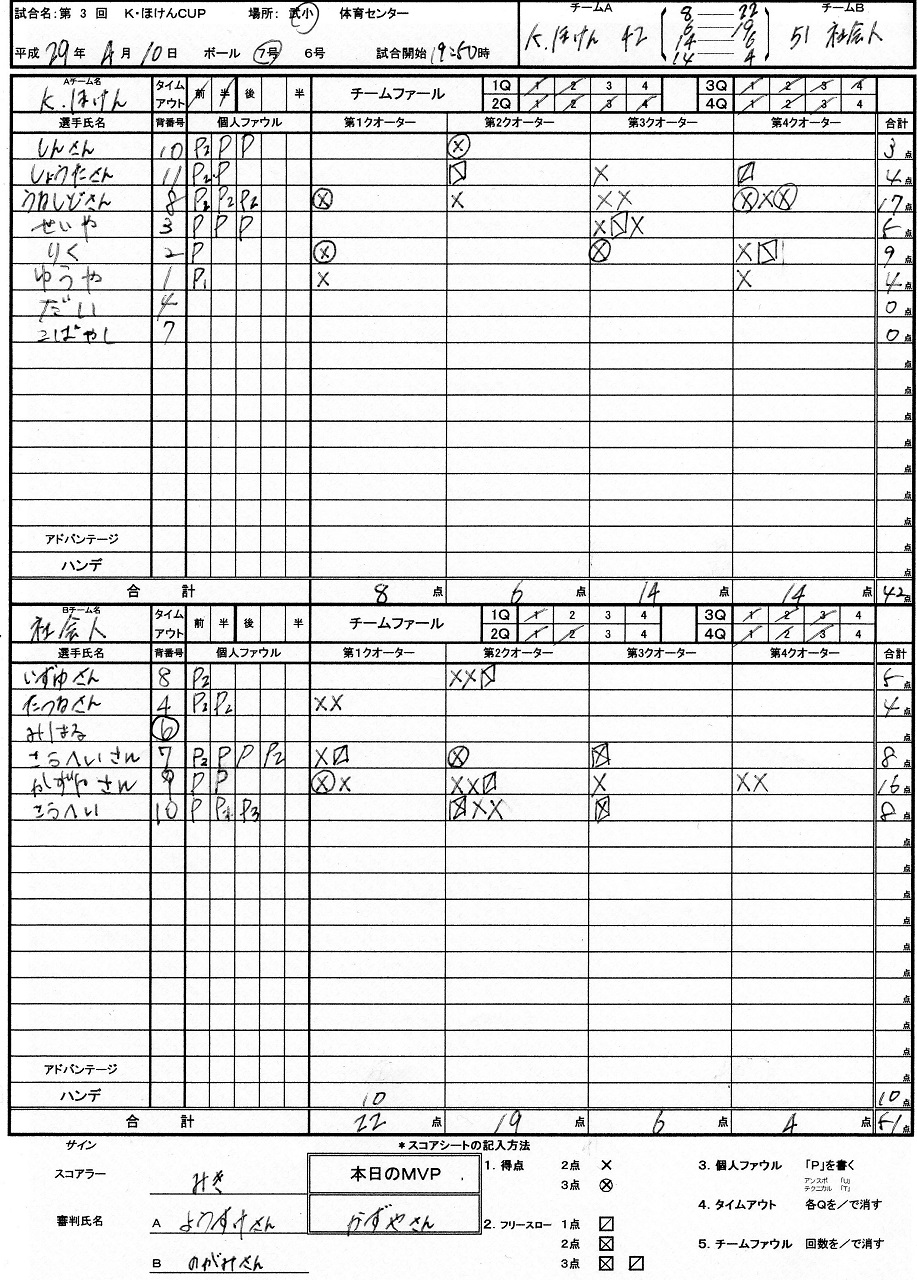 試合名：第 3 回 K・ほけんCUP 場所： 武小 体育センター
平成 29 年 4 月 10 日 ボール 7号 6号 試合開始 19:50 時
チームA チームB
K.ほけん 42 51 社会人
8 22
6 19
14 6
14 4
Aチーム名 タイムアウト 前 半 後 半 チームファール 1Q 1 2 3 4 3Q 1 2 3 4
K.ほけん 2Q 1 2 3 4 4Q 1 2 3 4
選手氏名 背番号 個人ファウル 第1クオーター 第2クオーター 第3クオーター 第4クオーター 合計
しんさん 10 P2 P P 3点
しょうたさん 11 P2 P 4点
8 P2 P2 P2 17点
せいや 3 P P P 5点
りく 2 P 9点
ゆうや 1 P1 4点
だい 4 0点
こばやし 7 0点
アドバンテージ 点
ハンデ 点
合計 8点 6点 14点 14点 42点
Bチーム名 タイムアウト 前 半 後 半 チームファール 1Q 1 2 3 4 3Q 1 2 3 4
社会人 2Q 1 2 3 4 4Q 1 2 3 4
選手氏名 背番号 個人ファウル 第1クオーター 第2クオーター 第3クオーター 第4クオーター 合計
いずゆさん 8 P2 5点
4 P2 P2 4点
みしはる 6 点
こうへいさん 7 P2 P P P2 8点
かずやさん 9 P P 16点
こうへい 10 P P3 8点
アドバンテージ 点
ハンデ 10 10点
合計 22点 19点 6点 4点 51点
サイン
スコアラー みき
審判氏名 A ようすけさん
B のがみさん
本日のMVP
かずやさん
＊スコアシートの記入方法
1. 得点 2点 ×
3点 ⊗
2. フリースロー 1点 〼
2点 ☒
3点 ☒ 〼
3. 個人ファウル 「P」を書く
アンスポ 「U」
テクニカル 「T」
4. タイムアウト 各Qを／で消す
5. チームファウル 回数を／で消す